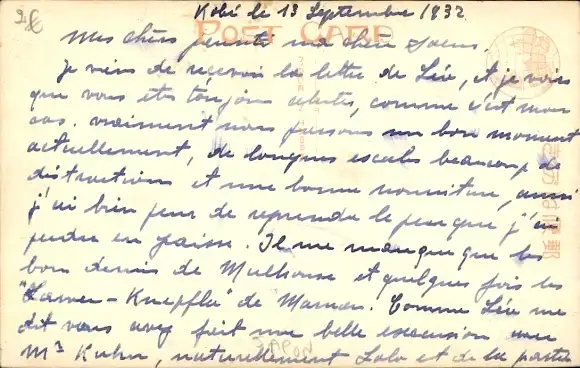 Kobé le 13 Septembre 1932
POST CARD
Mes chers parents ma chère soeur.
Je viens de recevoir la lettre de Léo, et je vois
que vous êtes toujours alertes, comme c'est mon
cas. vraiment nous passons un bon moment
actuellement, de longues escales beaucoup de
distractions et une bonne nourriture, aussi
j'ai bien peur de reprendre le peu que j'ai
perdu en graisse. Il me manque que les
bon demis de Mulhouse et quelques fois les
"Lawer-Knepfla" de Maman. Comme Léo me
dit vous avez fait une belle excursion avec
Mr Kuhn, naturellement Lolo et de la partie